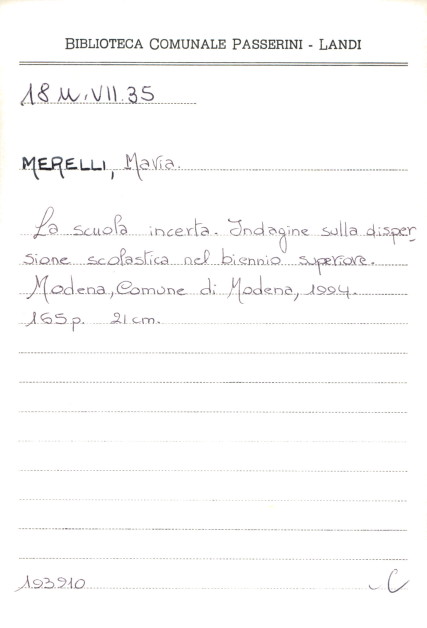 BIBLIOTECA COMUNALE PASSERINI - LANDI
18 U. VII. 35
MERELLI, Maria.
La scuola incerta. Indagine sulla disper-
sione scolastica nel biennio superiore.
Modena, Comune di Modena, 1994.
165 p. 21 cm.
193910
C